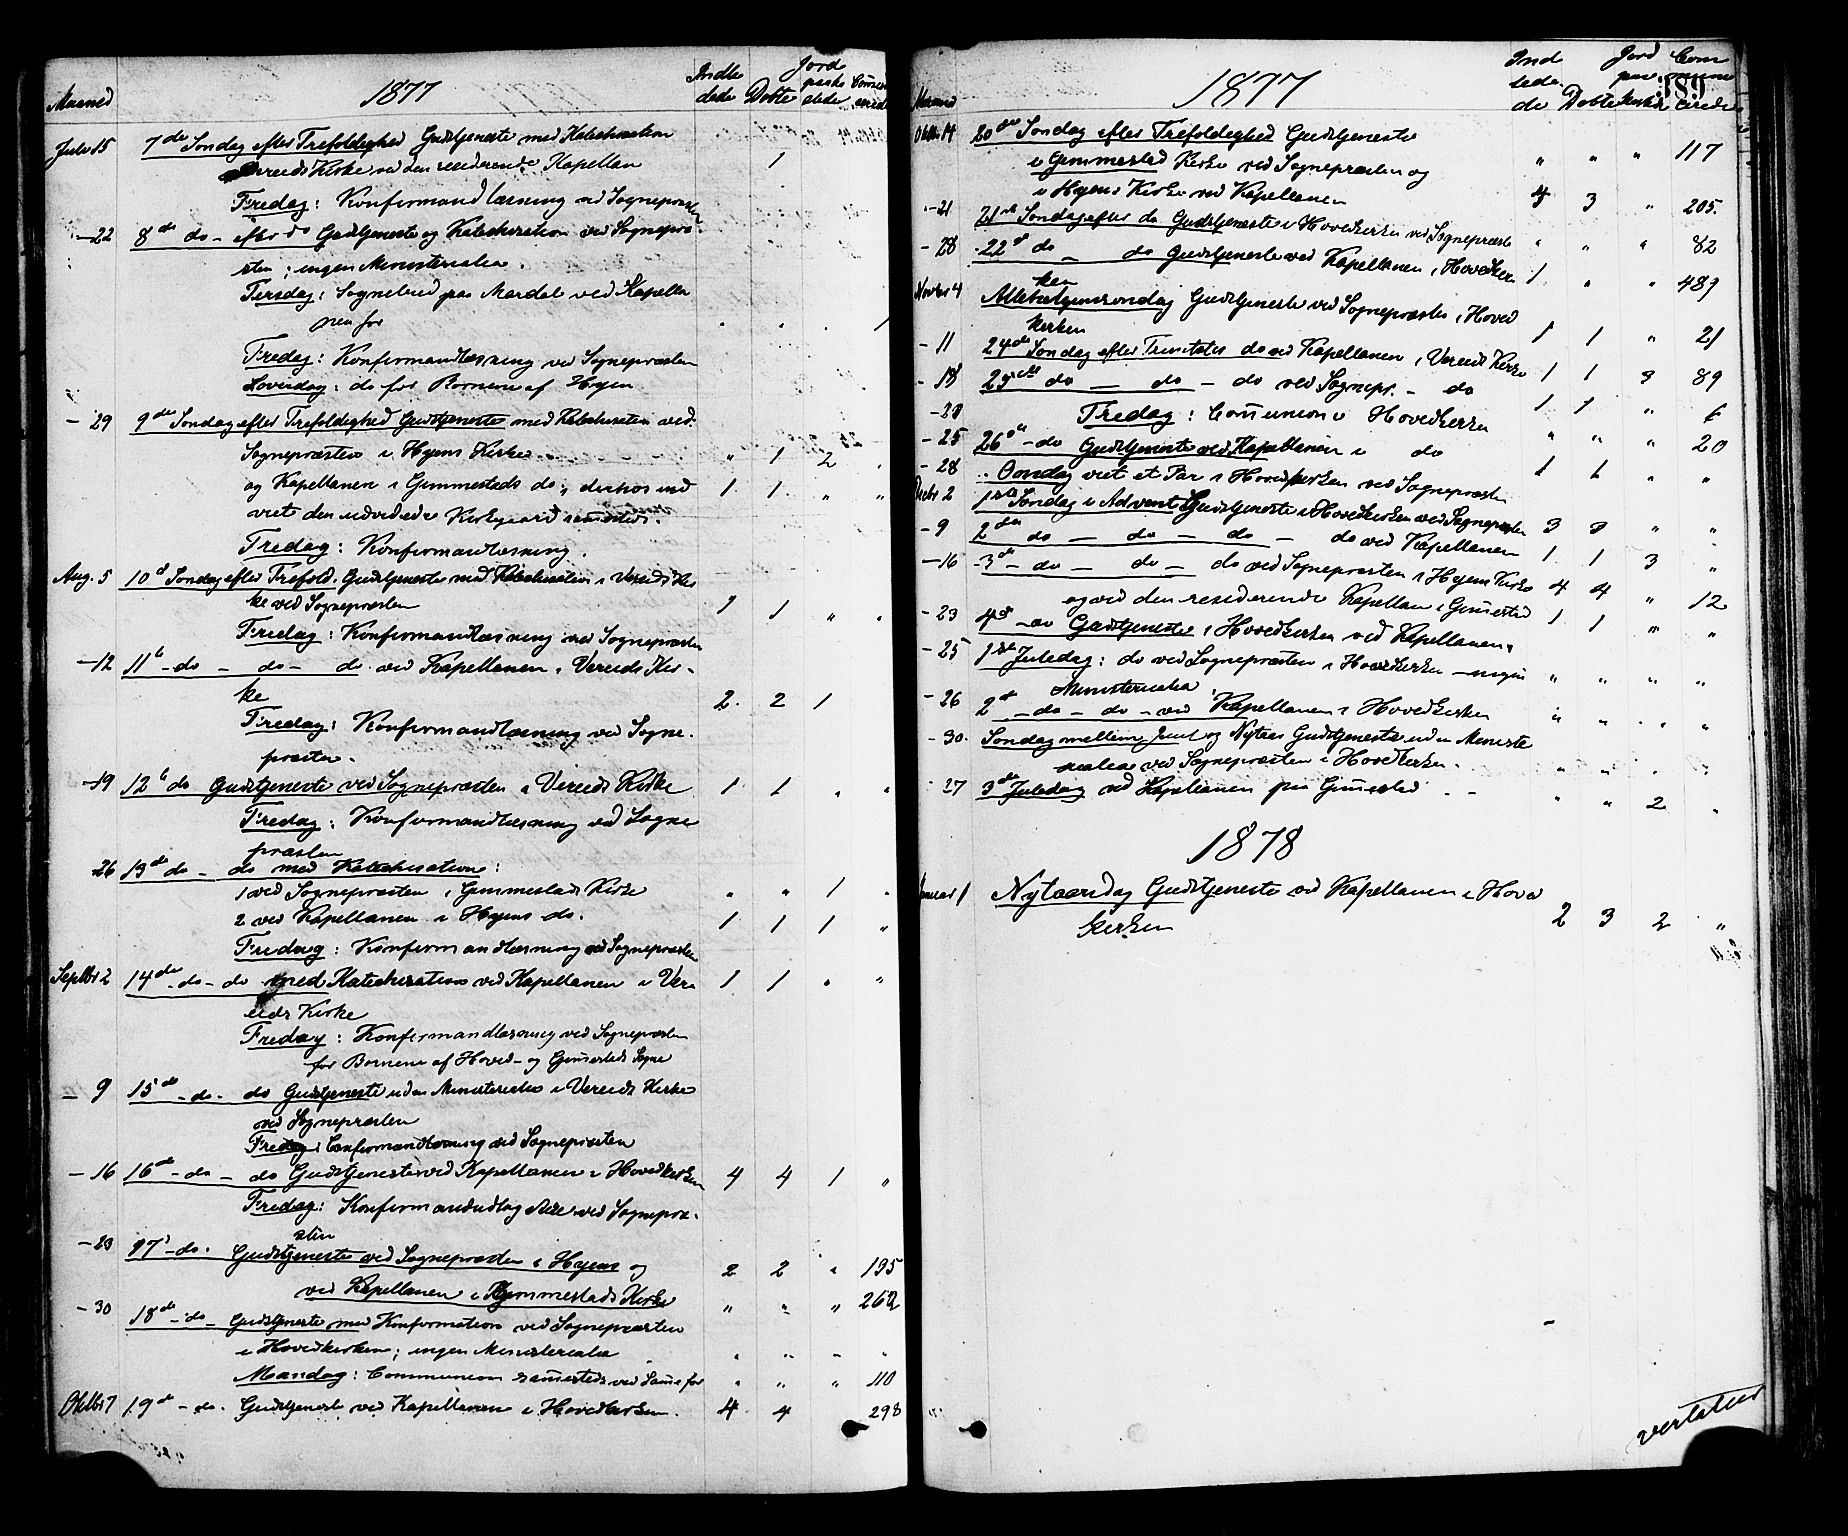 Maaned 1877 Indle
dede Døbte Jord
paaka
stede Com̄uni
cerede
Juli 15 7de Søndag efter Trefoldighed Gudstjeneste med Katechisation
Vereids Kirke ved den residerende Kapellan 1
Fredag: Konfirmandlæsning ved Sognepræsten
-22 8de do - efter do Gudstjeneste og Katechisation ved Sognepræ-
sten; ingen Ministerialia.
Tirsdag: Sognebud paa Mardal ved Kapella
nen for " " " 1
Fredag: Konfirmandlæsning ved Sognepræsten
Loverdag: do for Børnene af Hyen
- 29 9de Søndag efter Trefoldighed Gudstjeneste med Katechisation ved
Sognepræsten i Hyens Kirke " 1 2 "
og Kapellanen i Gimmestads do, derhos ind 1 1 " "
viet den udvidede Kirkegaard sammesteds.
Fredag: Konfirmandlæsning.
Aug. 5 10d Søndag efter Trefold. Gudstjeneste med Katechisation i Vereids Kir
ke ved Sognepræsten 1 1 " "
Fredag: Konfirmandlæsning ved Sognepræsten
-12 11te - do - do - do. ved Kapellanen i Vereids Kir-
ke 2. 2 1
Fredag: Konfirmandlæsning ved Sogne-
præsten.
-19 12te do Gudstjeneste ved Sognepræsten i Vereids Kirke 1 1 " "
Fredag: Konfirmandlæsning ved Sogne
præsten
-26 13de do - do med Katechisation:
1 ved Sognepræsten i Gimmestads Kirke " " 1 "
2 ved Kapellanen i Hyens do. 1 1 1 "
Fredag: Konfirmandlæsning ved Sognepræsten
Septbr 2 14de - do - do med Katechisation ved Kapellanen i Ver 1 1 " "
eids Kirke
Fredag: Konfirmandlæsning ved Sognepræsten
for Børnene af Hoved- og Gim̄estads Sogne
- 9 15de - do - do Gudstjeneste uden Ministerialia i Vereids Kirke
ved Sognepræsten
Fredag: Confirmandlæsning ved Sognepræsten
- 16 16de - do - do Gudstjeneste ved Kapellanen i Hovedkirken 4 4 1 "
Fredag: Konfirmandudtagelse ved Sognepræ-
sten
-23 17d - do. Gudstjeneste ved Sognepræsten i Hyens og 2 2 " 195
ved Kapellanen i Gimmestads Kirke " " " 262
-30 18de - do - Gudstjeneste med Konfirmation ved Sognepræsten
i Hovedkirken; ingen Ministerialia " " - "
Mandag: Communion sam̄esteds ved Sam̄e for " " " 110
Oktbr 7 19d - do. Gudstjeneste ved Kapellanen i Hovedkirken. 4 4 298
Maaned 1877 Ind
lede
de Døbte Jord
paa
kastede Com
muni
cerede
389
Oktbr 14 20de Søndag efter Trefoldighed Gudstjeneste
i Gimmestad Kirke ved Sognepræsten og " " " 117
i Hyens Kirke ved Kapellanen 4 3 " 205.
-21 21de Søndag efter do Gudstjeneste i Hovedkirken ved Sognepræste " " " 82
- 28 22d do - do Gudstjeneste ved Kapellanen i Hovedkir 1 " " 489
ken
Novbr 4 Allehelgenssøndag Gudstjeneste ved Sognepræsten i Hoved
kirken 1 1 " 21
- 11 24de Søndag efter Trinitatis do ved Kapellanen i Vereids Kirke 1 1 3 89
- 18 25de do - do - do ved Sognepr. - do 1 1 " 6
-23 Fredag: Com̄union i Hovedkirken " " " 20
- 25 26de - do Gudstjeneste ved Kapellanen i do 1 1 " "
- 28 Onsdag viet et Par i Hovedkirken ved Sognepræsten
Decbr 2 1ste Søndag i Advent Gudstjeneste i Hovedkirken ved Sognepræsten 3 3 " "
- 9 2den do - do - do - do ved Kapellanen 1 1 3 "
- 16 3de - do - do - do ved Sognepræsten i Hyens Kirke 4 4 " 12
og ved den residerende Kapellan i Gim̄estad 1 1 " "
- 23 4de - do Gudstjeneste i Hovedkirken ved Kapellanen.
- 25 1ste Juledag: do ved Sognepræsten i Hovedkirken - ingen " " " "
Ministerialia.
- 26 2d - do - do - ved Kapellanen i Hovedkirken " " " "
- 30. Søndag mellem Juul og Nytaar Gudstjeneste uden Ministe
rialia ved Sognepræsten i Hovedkirken. " " . "
- 27 3de Juledag ved Kapellanen paa Gim̄estad - - " " 2 "
1878
Januar 1 Nytaarsdag Gudstjeneste ved Kapellanen i Hoved
kirken 2 3 2 "
vertatur